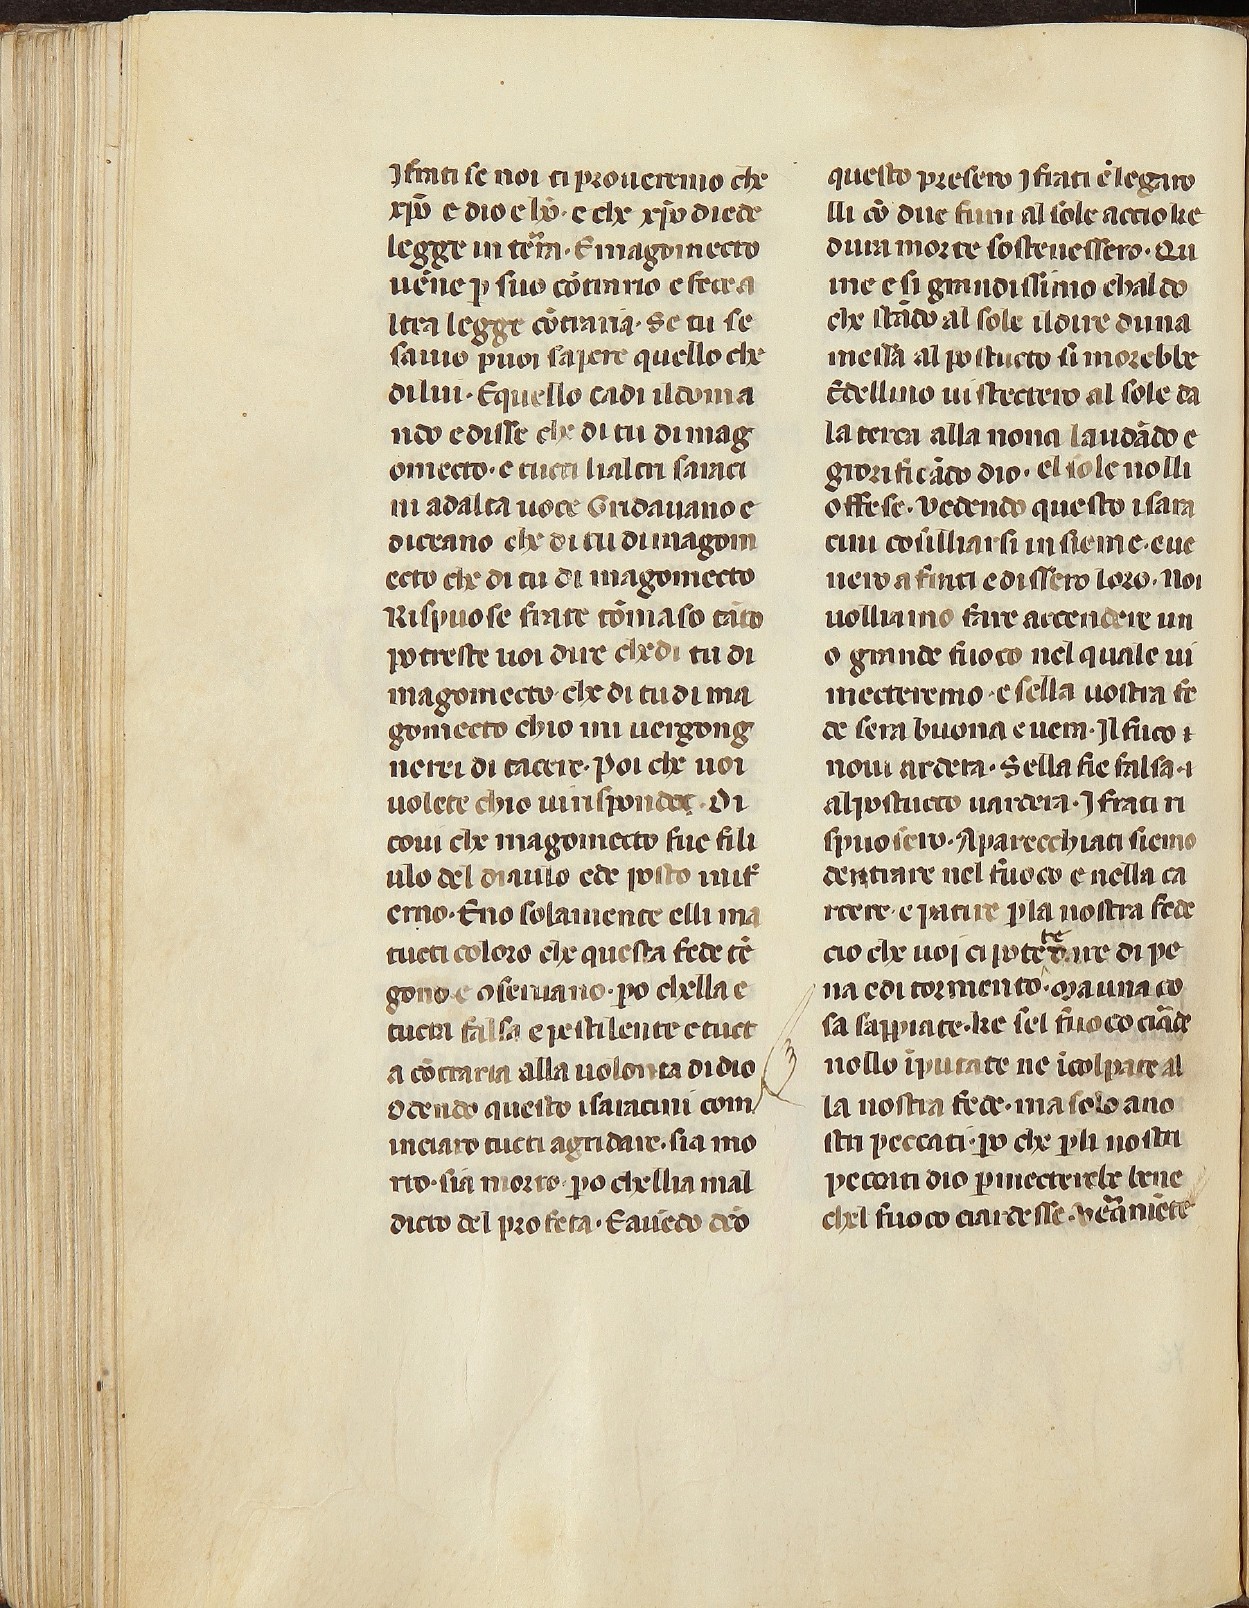 I frati se noi ti proueremo che
xp̄o e dio e ho̅. e che xp̄o diede
legge in teᷓra. E magomecto
uēne ꝑ suo cōtrario e fece a
ltra legge cōtraria. Se tu se
sauio puoi sapere quello che
di lui. E quello cadi il doma
ndo e disse che di tu di mag
omecto. e tucti li altri saraci
ni ad alta uoce Gridauano e
diceano che di tu di magom
ecto che di tu di magomecto
Rispuose frate tōmaso tāto
potreste uoi dire che di tu di
magomecto che di tu di ma
gomecto chio mi uergong
nerei di tacere. Poi che uoi
uolete chio ui rispondeç. Di
coui che magomecto fue fili
ulo del diaulo ede posto ninf̄
erno. E no solamente elli ma
tucti coloro che questa fede tē
gono e oseruano. po chella e
tucta falsa e pestilente e tuct
a cōtraria alla uolonta di dio
Odendo questo i saracini com
inciaro tucti a gridare. sia mo
rto. sia morto. po chellia mal
dicto del profeta. E auēdo dc̄o
questo presero I frati ē legaro
lli cō due funi al sole accio ke
dura morte sostenessero. Qu
ine e si grandissimo chaldo
che stādo al sole il dire duna
messa al postucto si morebbe
Edellino ui stectero al sole da
la terça alla nona laudādo e
grorificādo dio. el sole nolli
offese. Vedendo questo i sara
cini cosilliarsi insieme. e ue
nero a frati e dissero loro. Noi
uolliamo fare accendere un
o grande fuoco nel quale ui
mecteremo. e sella uostra fe
de sera buona e uera. Il fuco
noui ardera. Sella fie falsa.
al postucto uardera. I frati ri
spuosero. Aparecchiati siemo
dentrare nel fuoco e nella ca
rcere e patire ꝑ la nostra fede
cio che uoi ci potete dare di pe
na e di tormento. Ma una co
sa sappiate. ke sel fuoco ciarde
nollo īputate ne īcolpate al
la nostra fede. ma solo a no
stri peccati. po che ꝑ li nostri
peccati dio ꝑmecterebe bene
chel fuoco ciardesse. Veramēte